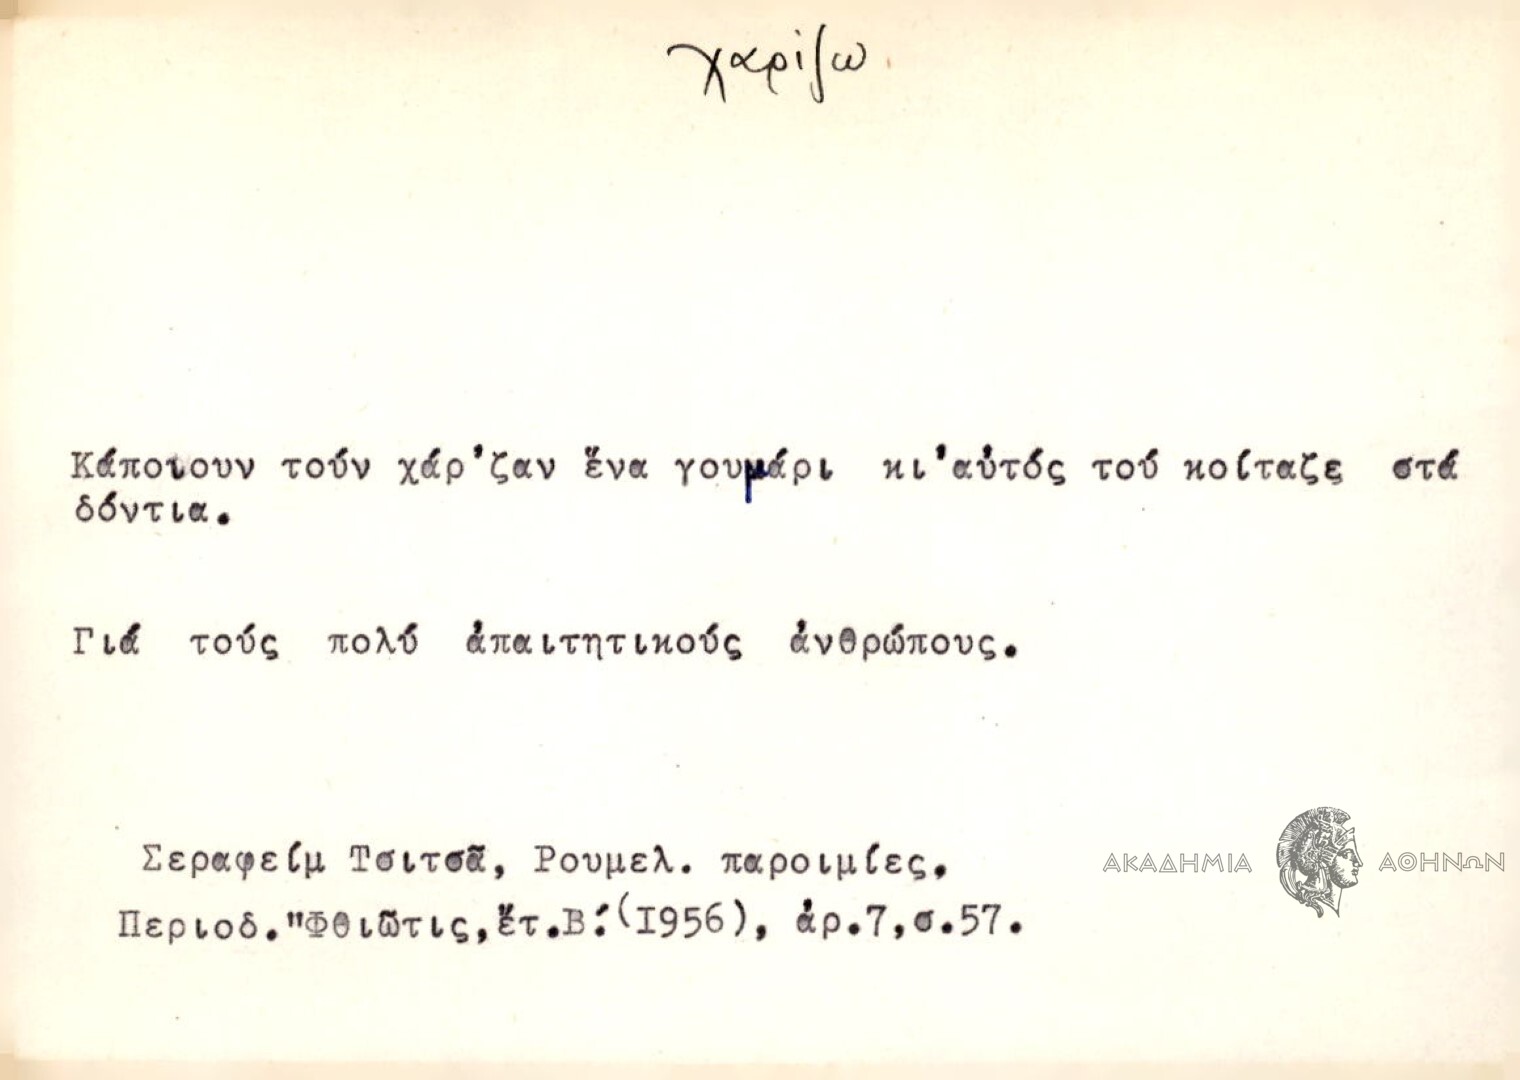 χαρίζω
Κάποιουν τούν χάρ'ζαν ἕνα γουμάρι κι'αὐτός τού κοίταζε στά
δόντια.
Γιά τούς πολύ ἀπαιτητικούς ἀνθρώπους.
Σεραφείμ Τσιτσᾶ, Ρουμελ. παροιμίες,
Περιοδ."Φθιῶτις,ἔτ.Β΄.(1956), ἀρ.7,σ.57.
ΑΚΑΔΗΜΙΑ ΑΘΗΝΩΝ